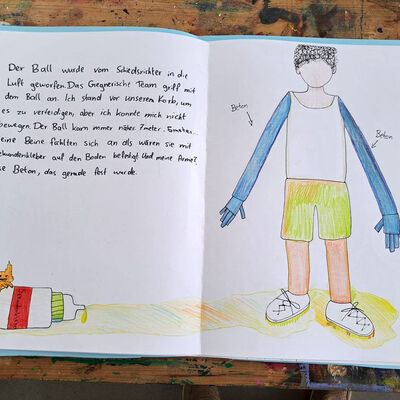 Der Ball wurde vom Schiedsrichter in die
Luft geworfen. Das Gegnerische Team griff mit
dem Ball an. Ich stand vor unserem Korb, um
es zu verteidigen, aber ich konnte mich nicht
bewegen. Der Ball kam immer näher. 7 meter.
eine Beine fühlten sich an als wären sie mit
ekundenkleber auf den Boden befestigt. Und meine Arme?
ie Beton, das gerade fest wurde.
Beton
Beton